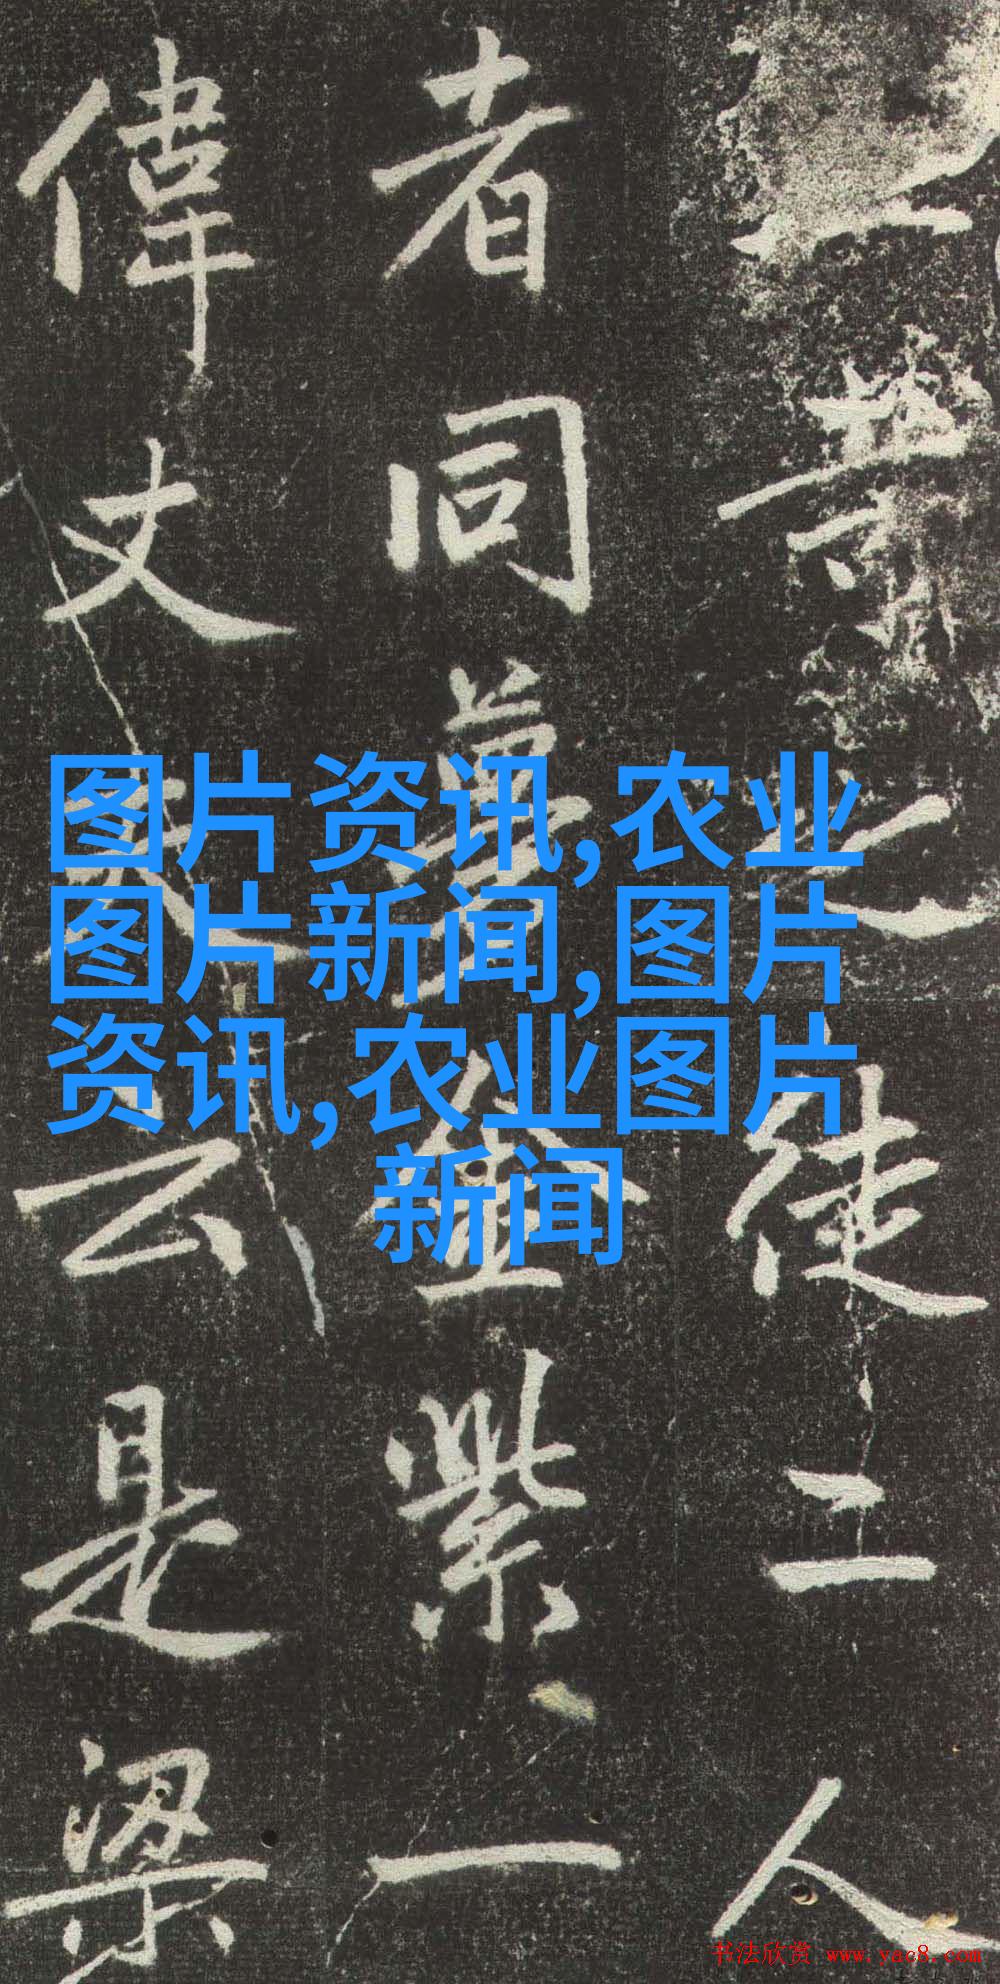 業之徒二人
者同夢金紫一
偉丈夫云是梁
图片资讯,农业
图片新闻,图片
资讯,农业图片
新闻
书法欣赏 www.yac8.com